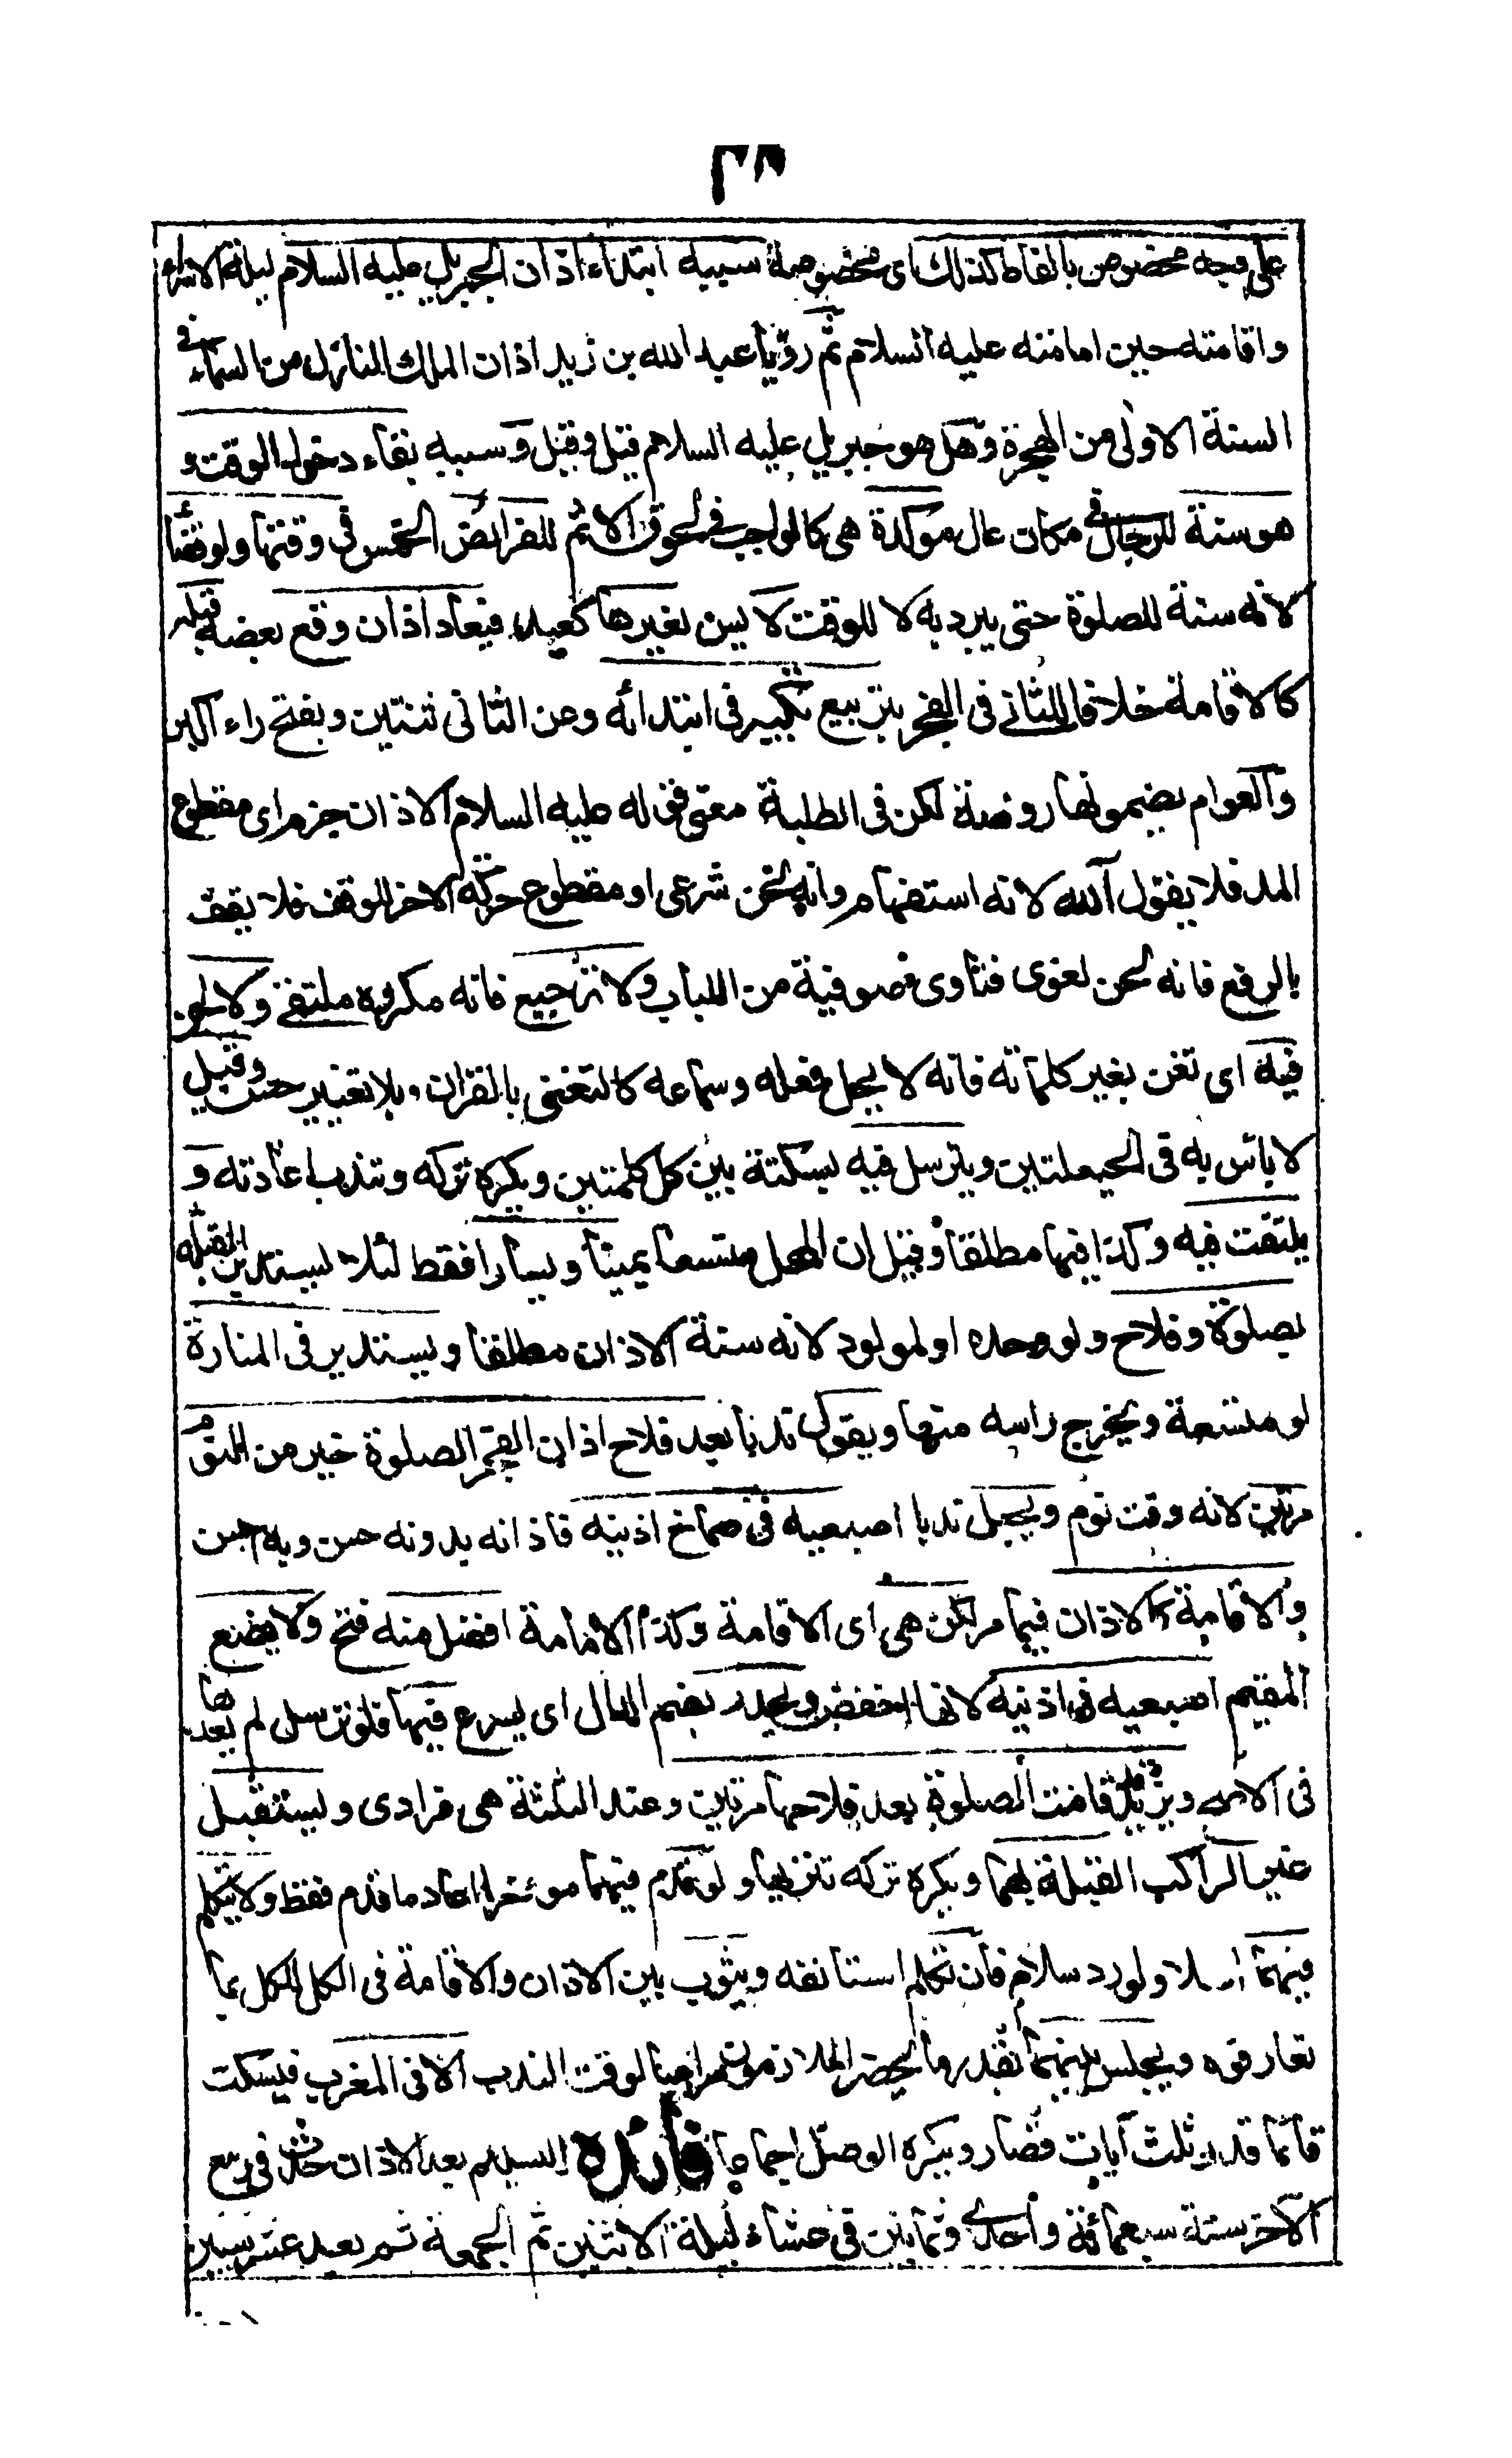 ٣٨
على وجه مخصوص بالفاظ كذلك اى مخصوصة سببه ابتداء اذان جبريل عليه السلام ليلة الاسراء
واقامته حين امامته عليه السلام ثم رؤيا عبد الله بن زيد اذان الملك النازل من السماء فى
السنة الاولى من الهجرة وهل هو جبريل عليه السلام قيل وقيل وسببه بقاء دخول الوقت و
هو سنة للرجال فى مكان عال مؤكدة هى كالواجب فى لحوق الاثم للفرائض الخمس فى وقتها ولو قضأ
لانه سنة للصلوة حتى يبرد به لا للوقت لا يسن لغيرها كعيد فيعاد اذان وقع بعضه قبله
كالاقامة خلافا للثانى فى الفجر بتربيع تكبير فى ابتدائه وعن الثانى ثنتين وبفتح راء اكبر
والعوام يضمونها روضة لكن فى الطلبة معنى قوله عليه السلام الاذان جزم اى مقطوع
المد فلا يقول آلله لانه استفهام وانه لحن شرعى او مقطوع حركة الاخر للوقف فلا يقف
بالرفع فانه لحن لغوى فتاوى صوفية من اللباب ولا ترجيع فانه مكروه ملتقى ولا لحن
فيه اى تغن بغير كلماته فانه لا يحل فعله وسماعه كالتغنى بالقران وبلا تغيير حسن وقيل
لا باس به فى الحيعلتين ويترسل فيه بسكتة بين كل كلمتين ويكره تركه وتندب اعادته و
يلتفت فيه وكذا فيها مطلقا وقيل ان المحل متسعا يمينا ويسارا فقط لئلا يستدبر القبلة
بصلوة وفلاح ولو وحده او لمولود لانه سنة الاذان مطلقا ويستدير فى المنارة
لو متسعة ويخرج راسه منها ويقول ندبا بعد فلاح اذان الفجر الصلوة خير من النوم
مرتين لانه وقت نوم ويجعل ندبا اصبعيه فى صماخ اذنيه فاذانه بدونه حسن وبه احسن
والاقامة كالاذان فيما مر لكن هى اى الاقامة وكذا الامامة افضل منه فتح ولا يضع
المقيم اصبعيه فى اذنيه لانها اخفض ويحدر بضم الدال اى يسرع فيها فلو ترسل لم يعدها
فى الاصح ويزيد قد قامت الصلوة بعد فلاحها مرتين وعند الثلثة هى فرادى ويستقبل
غير الراكب القبلة بهما ويكره تركه تنزيها ولو قدم فيهما مؤخرا اعاد ما قدم فقط ولا يتكلم
فيهما اصلا ولو رد سلام فان تكلم استانفه ويثوب بين الاذان والاقامة فى الكل للكل بما
تعارفوه ويجلس بينهما بقدر ما يحضر الملازمون مراعيا لوقت الندب الا فى المغرب فيسكت
قائما قدر ثلث آيات قصار ويكره الوصل اجماعا فائده التسليم بعد الاذان حدث فى ربيع
الآخر سنة سبعمائة واحدى وثمانين فى عشاء ليلة الاثنين ثم الجمعة ثم بعد عشر سنين